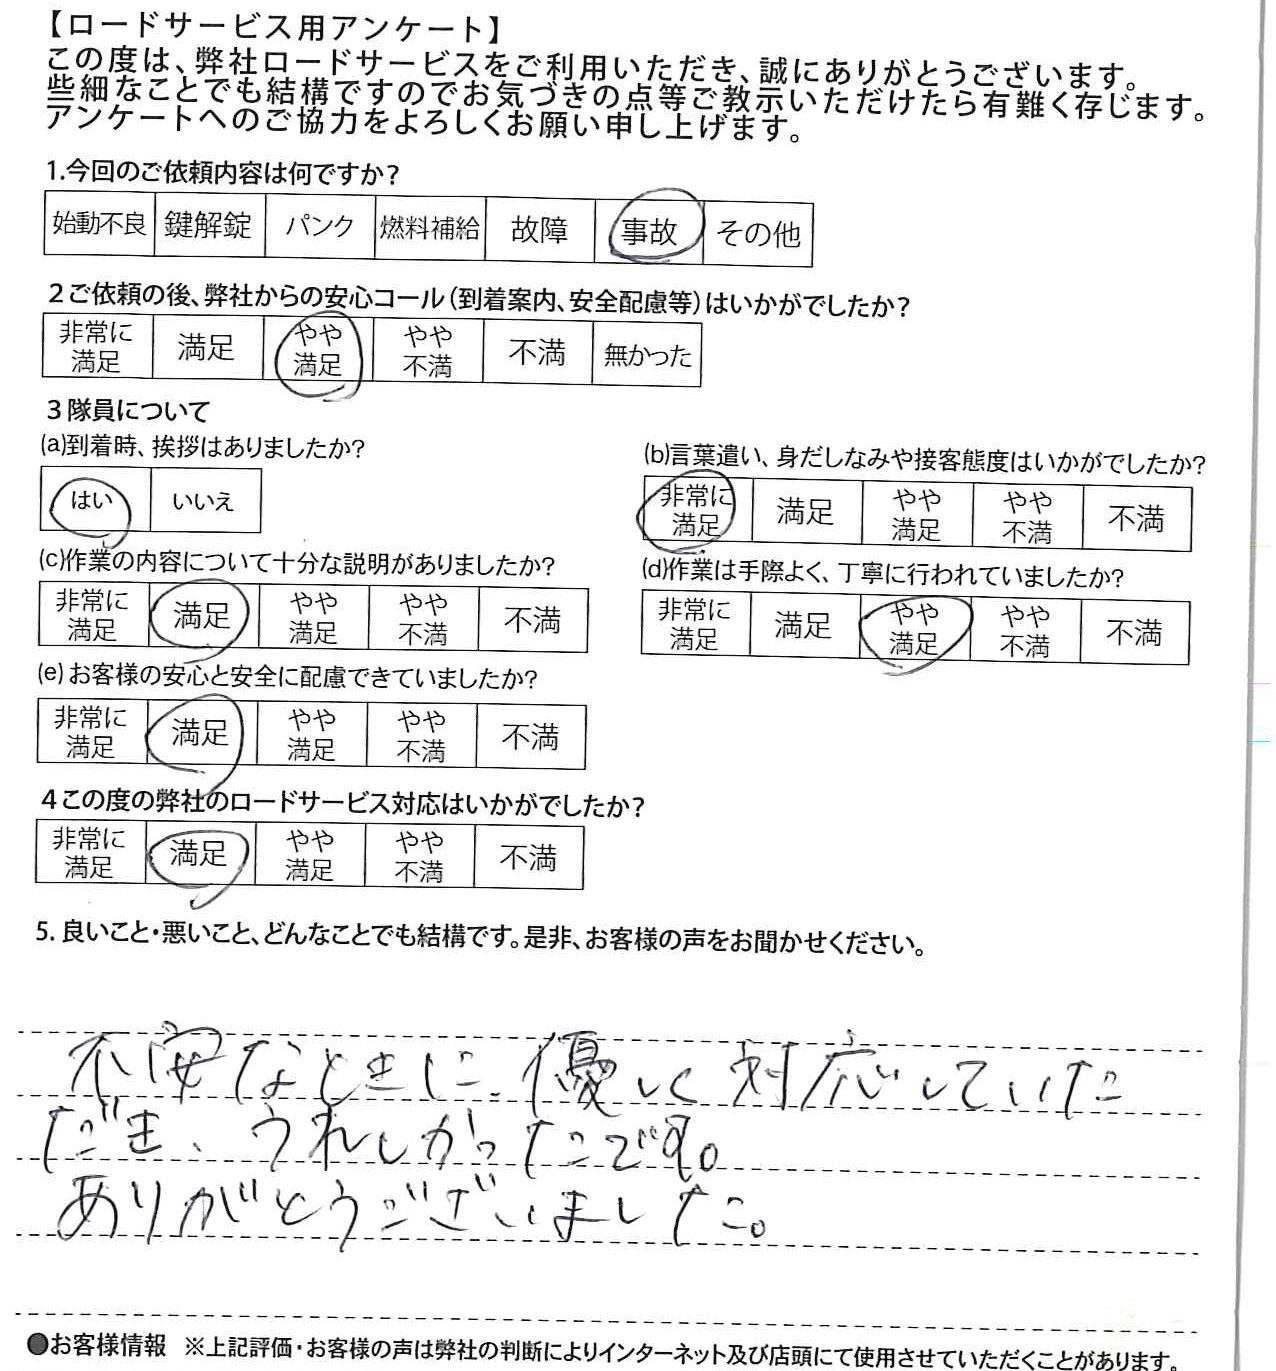 【ロードサービス用アンケート】
この度は、弊社ロードサービスをご利用いただき、誠にありがとうございます。
些細なことでも結構ですのでお気づきの点等ご教示いただけたら有難く存じます。
アンケートへのご協力をよろしくお願い申し上げます。
1.今回のご依頼内容は何ですか?
始動不良 鍵解錠 パンク 燃料補給 故障 事故 その他
2ご依頼の後、弊社からの安心コール(到着案内、安全配慮等)はいかがでしたか?
非常に満足 満足 やや満足 やや不満 不満 無かった
3隊員について
(a)到着時、挨拶はありましたか?
はい いいえ
(b)言葉遣い、身だしなみや接客態度はいかがでしたか?
非常に満足 満足 やや満足 やや不満 不満
(c)作業の内容について十分な説明がありましたか?
非常に満足 満足 やや満足 やや不満 不満
(d)作業は手際よく、丁寧に行われていましたか?
非常に満足 満足 やや満足 やや不満 不満
(e)お客様の安心と安全に配慮できていましたか?
非常に満足 満足 やや満足 やや不満 不満
4この度の弊社のロードサービス対応はいかがでしたか?
非常に満足 満足 やや満足 やや不満 不満
5. 良いこと・悪いこと、どんなことでも結構です。是非、お客様の声をお聞かせください。
不安なときに、優しく対応していた
だき、うれしかったです。
ありがとうございました。
●お客様情報 ※上記評価・お客様の声は弊社の判断によりインターネット及び店頭にて使用させていただくことがあります。